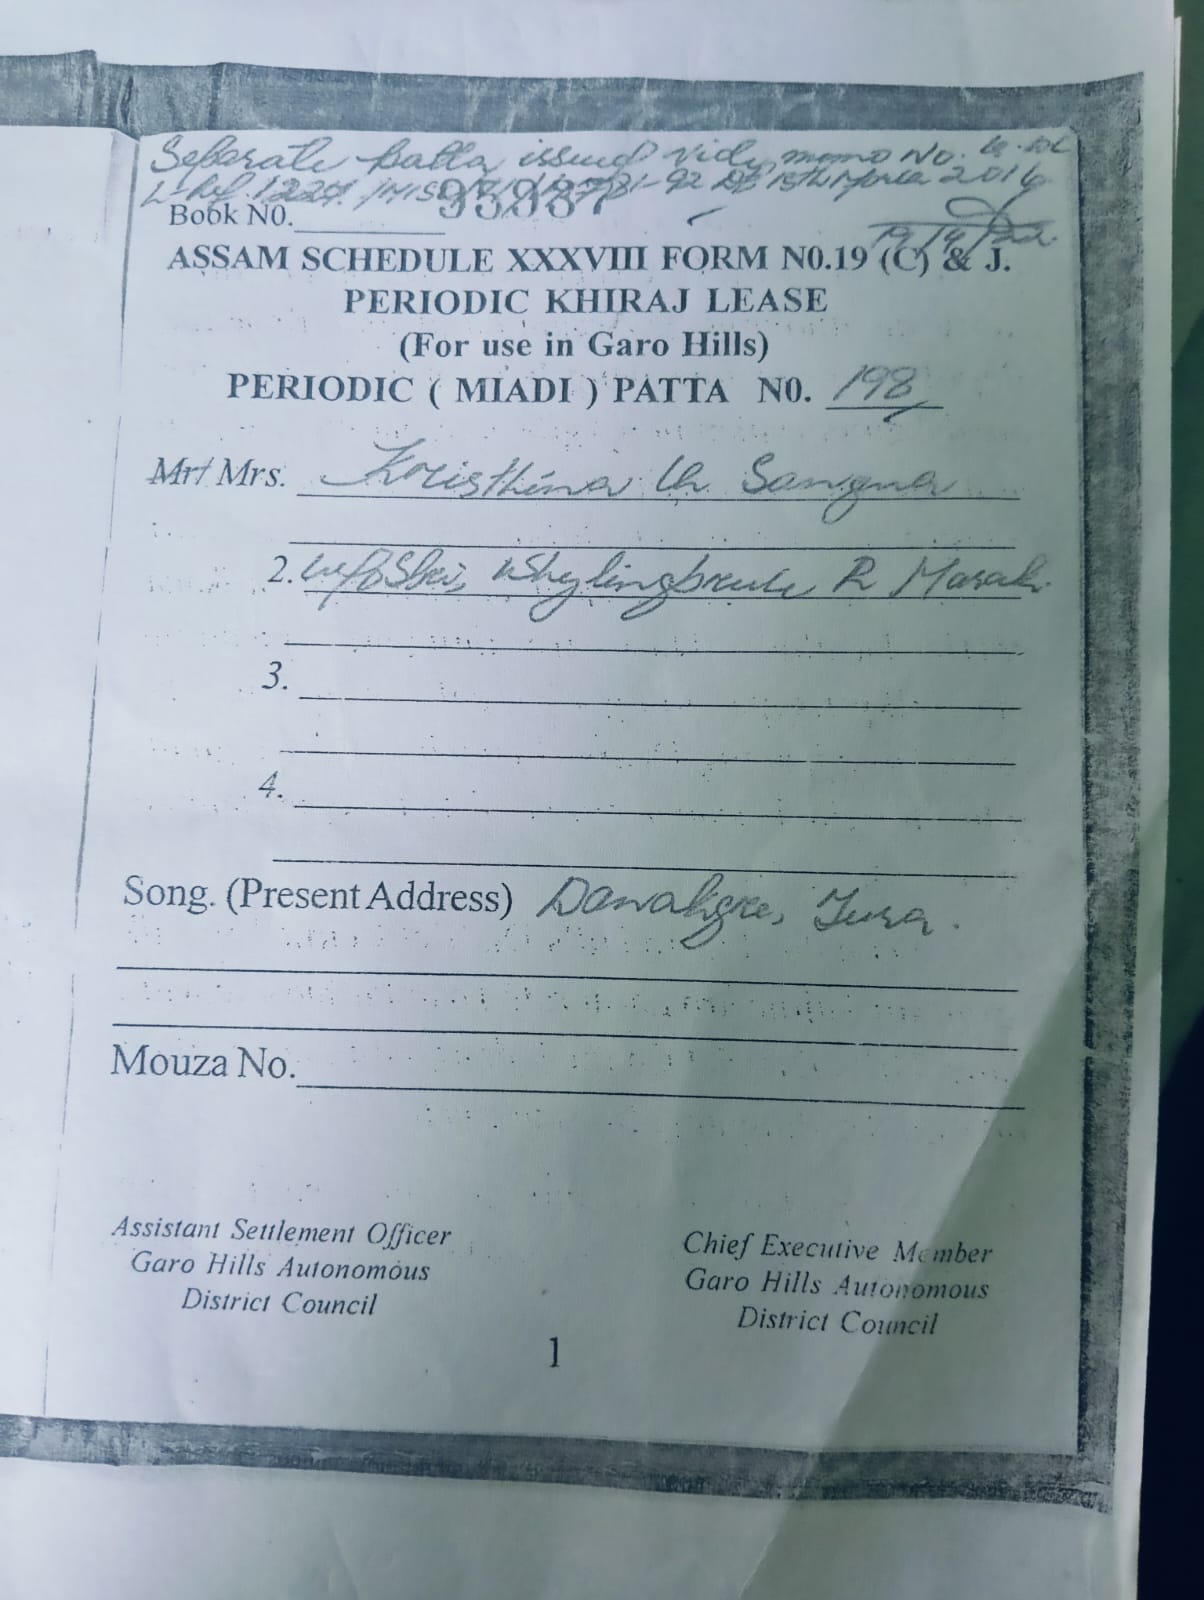 Separate patta issued vide memo No.
15th March 2016
Book N0.
19/4/22
ASSAM SCHEDULE XXXVIII FORM N0.19 (C) & J.
PERIODIC KHIRAJ LEASE
(For use in Garo Hills)
PERIODIC ( MIADI ) PATTA N0. 198
Mr/ Mrs. Kristhina Ch Sangma
2. W/o Shri, R Marak.
3.
4.
Song. (Present Address) Danakgre, Tura.
Mouza No.
Assistant Settlement Officer
Garo Hills Autonomous
District Council
Chief Executive Member
Garo Hills Autonomous
District Council
1